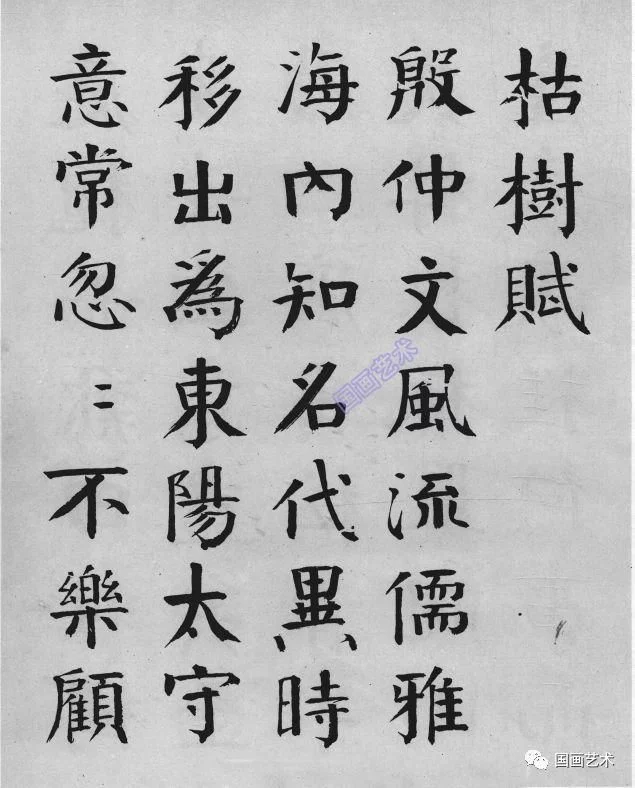 枯樹賦
殷仲文風流儒雅
海內知名代異時
移出為東陽太守
意常忽〻不樂顧
国画艺术
国画艺术